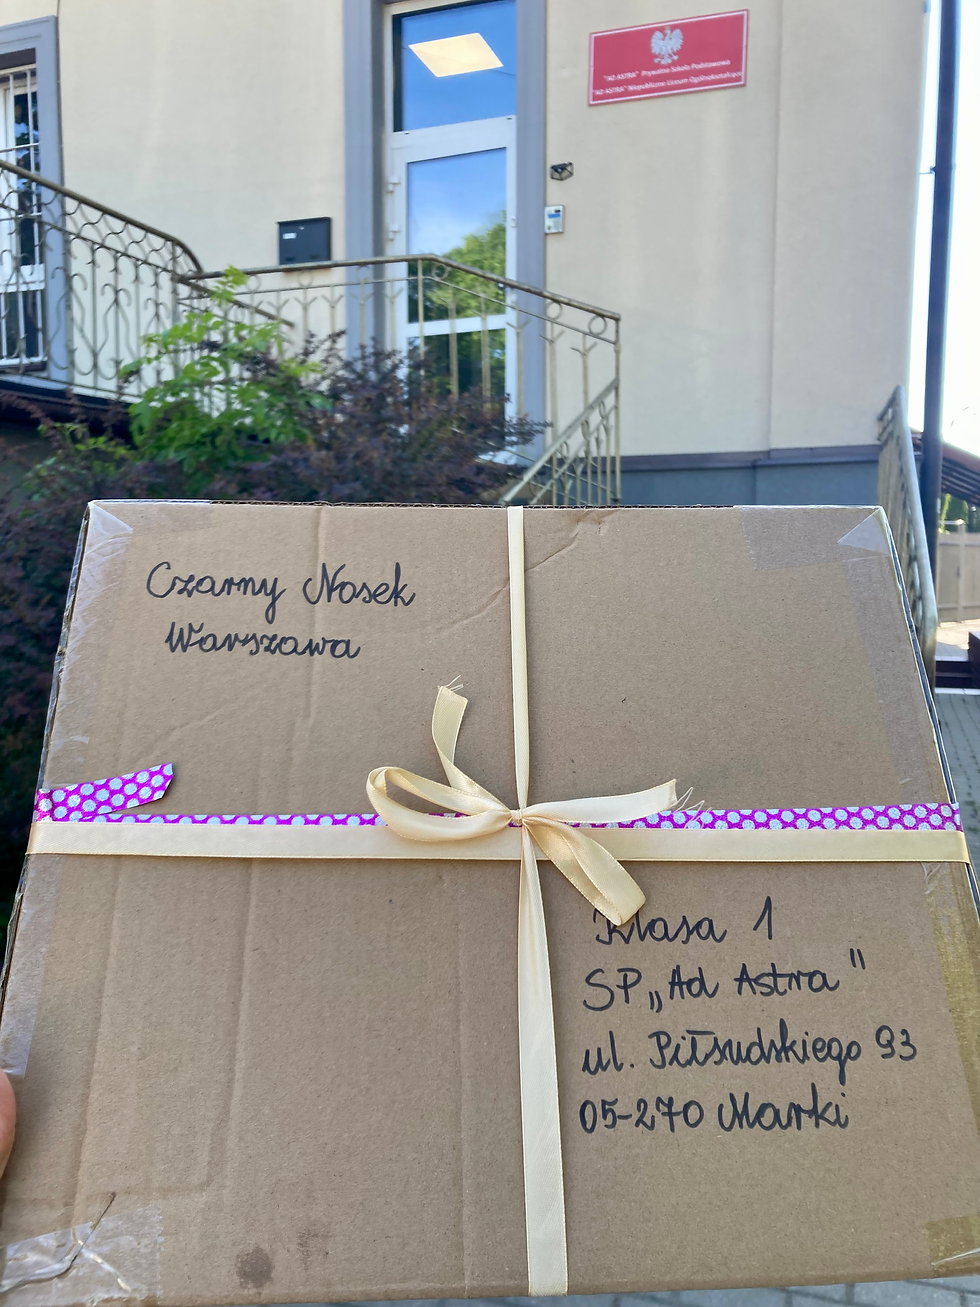 "AD ASTRA" Prywatna Szkoła Podstawowa
"AD ASTRA" Niepubliczne Liceum Ogólnokształcące
Czarny Nosek
Warszawa
Klasa 1
SP „Ad Astra"
ul. Piłsudskiego 93
05-270 Marki